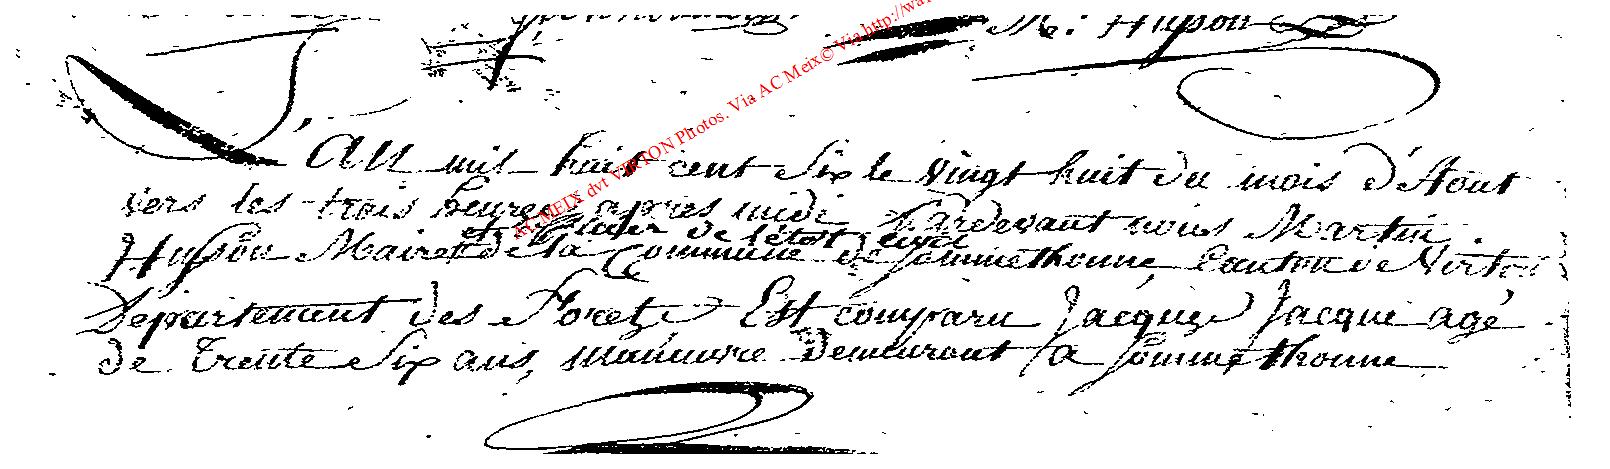 M: Husson
L'An mil huit cent Six le vingt huit du mois d'Aout
vers les trois heures apres midi Pardevant nous Martin
et officier de l'état civil
Husson Maire de la Commune de Sommethonne Canton de Virton
Département des Foretz Est comparu Jacque Jacque agé
de trente Six ans, manuvre demeurant a Sommethonne
AC MEIX dvt VIRTON Photos. Via AC Meix© Via http://wa